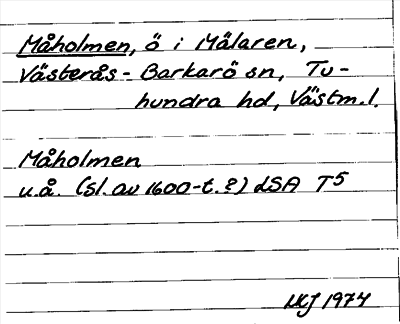 Måholmen, ö i Mälaren,
Västerås-Barkarö sn, Tu-
hundra hd, Västm.l.
Måholmen
u.å. (sl. av 1600-t.?) LSA T5
1974